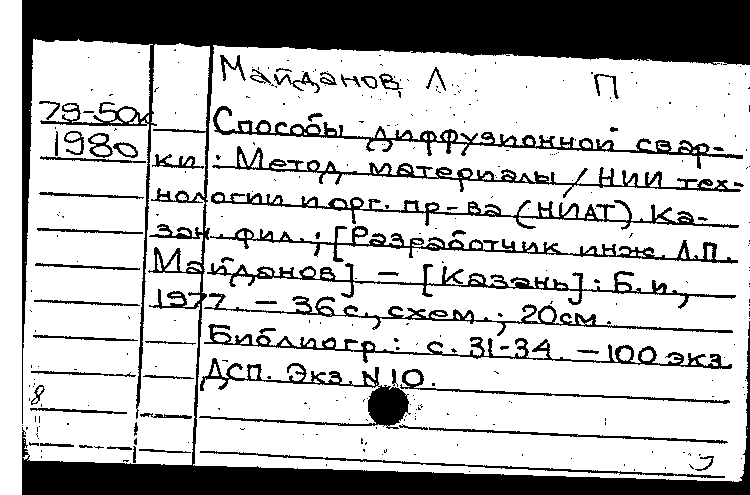 Майданов, Л П
79-50к
1980
Способы диффузионной свар-
ки : Метод. материалы / НИИ тех-
нологии и орг. пр-ва (НИАТ). Ка-
зан. фил. ; [Разработчик инж. Л.П.
Майданов] – [Казань] : Б. и.,
1977. – 36 с., схем. ; 20 см.
Библиогр. : с. 31-34. – 100 экз
ДСП. Экз. N 10.
8